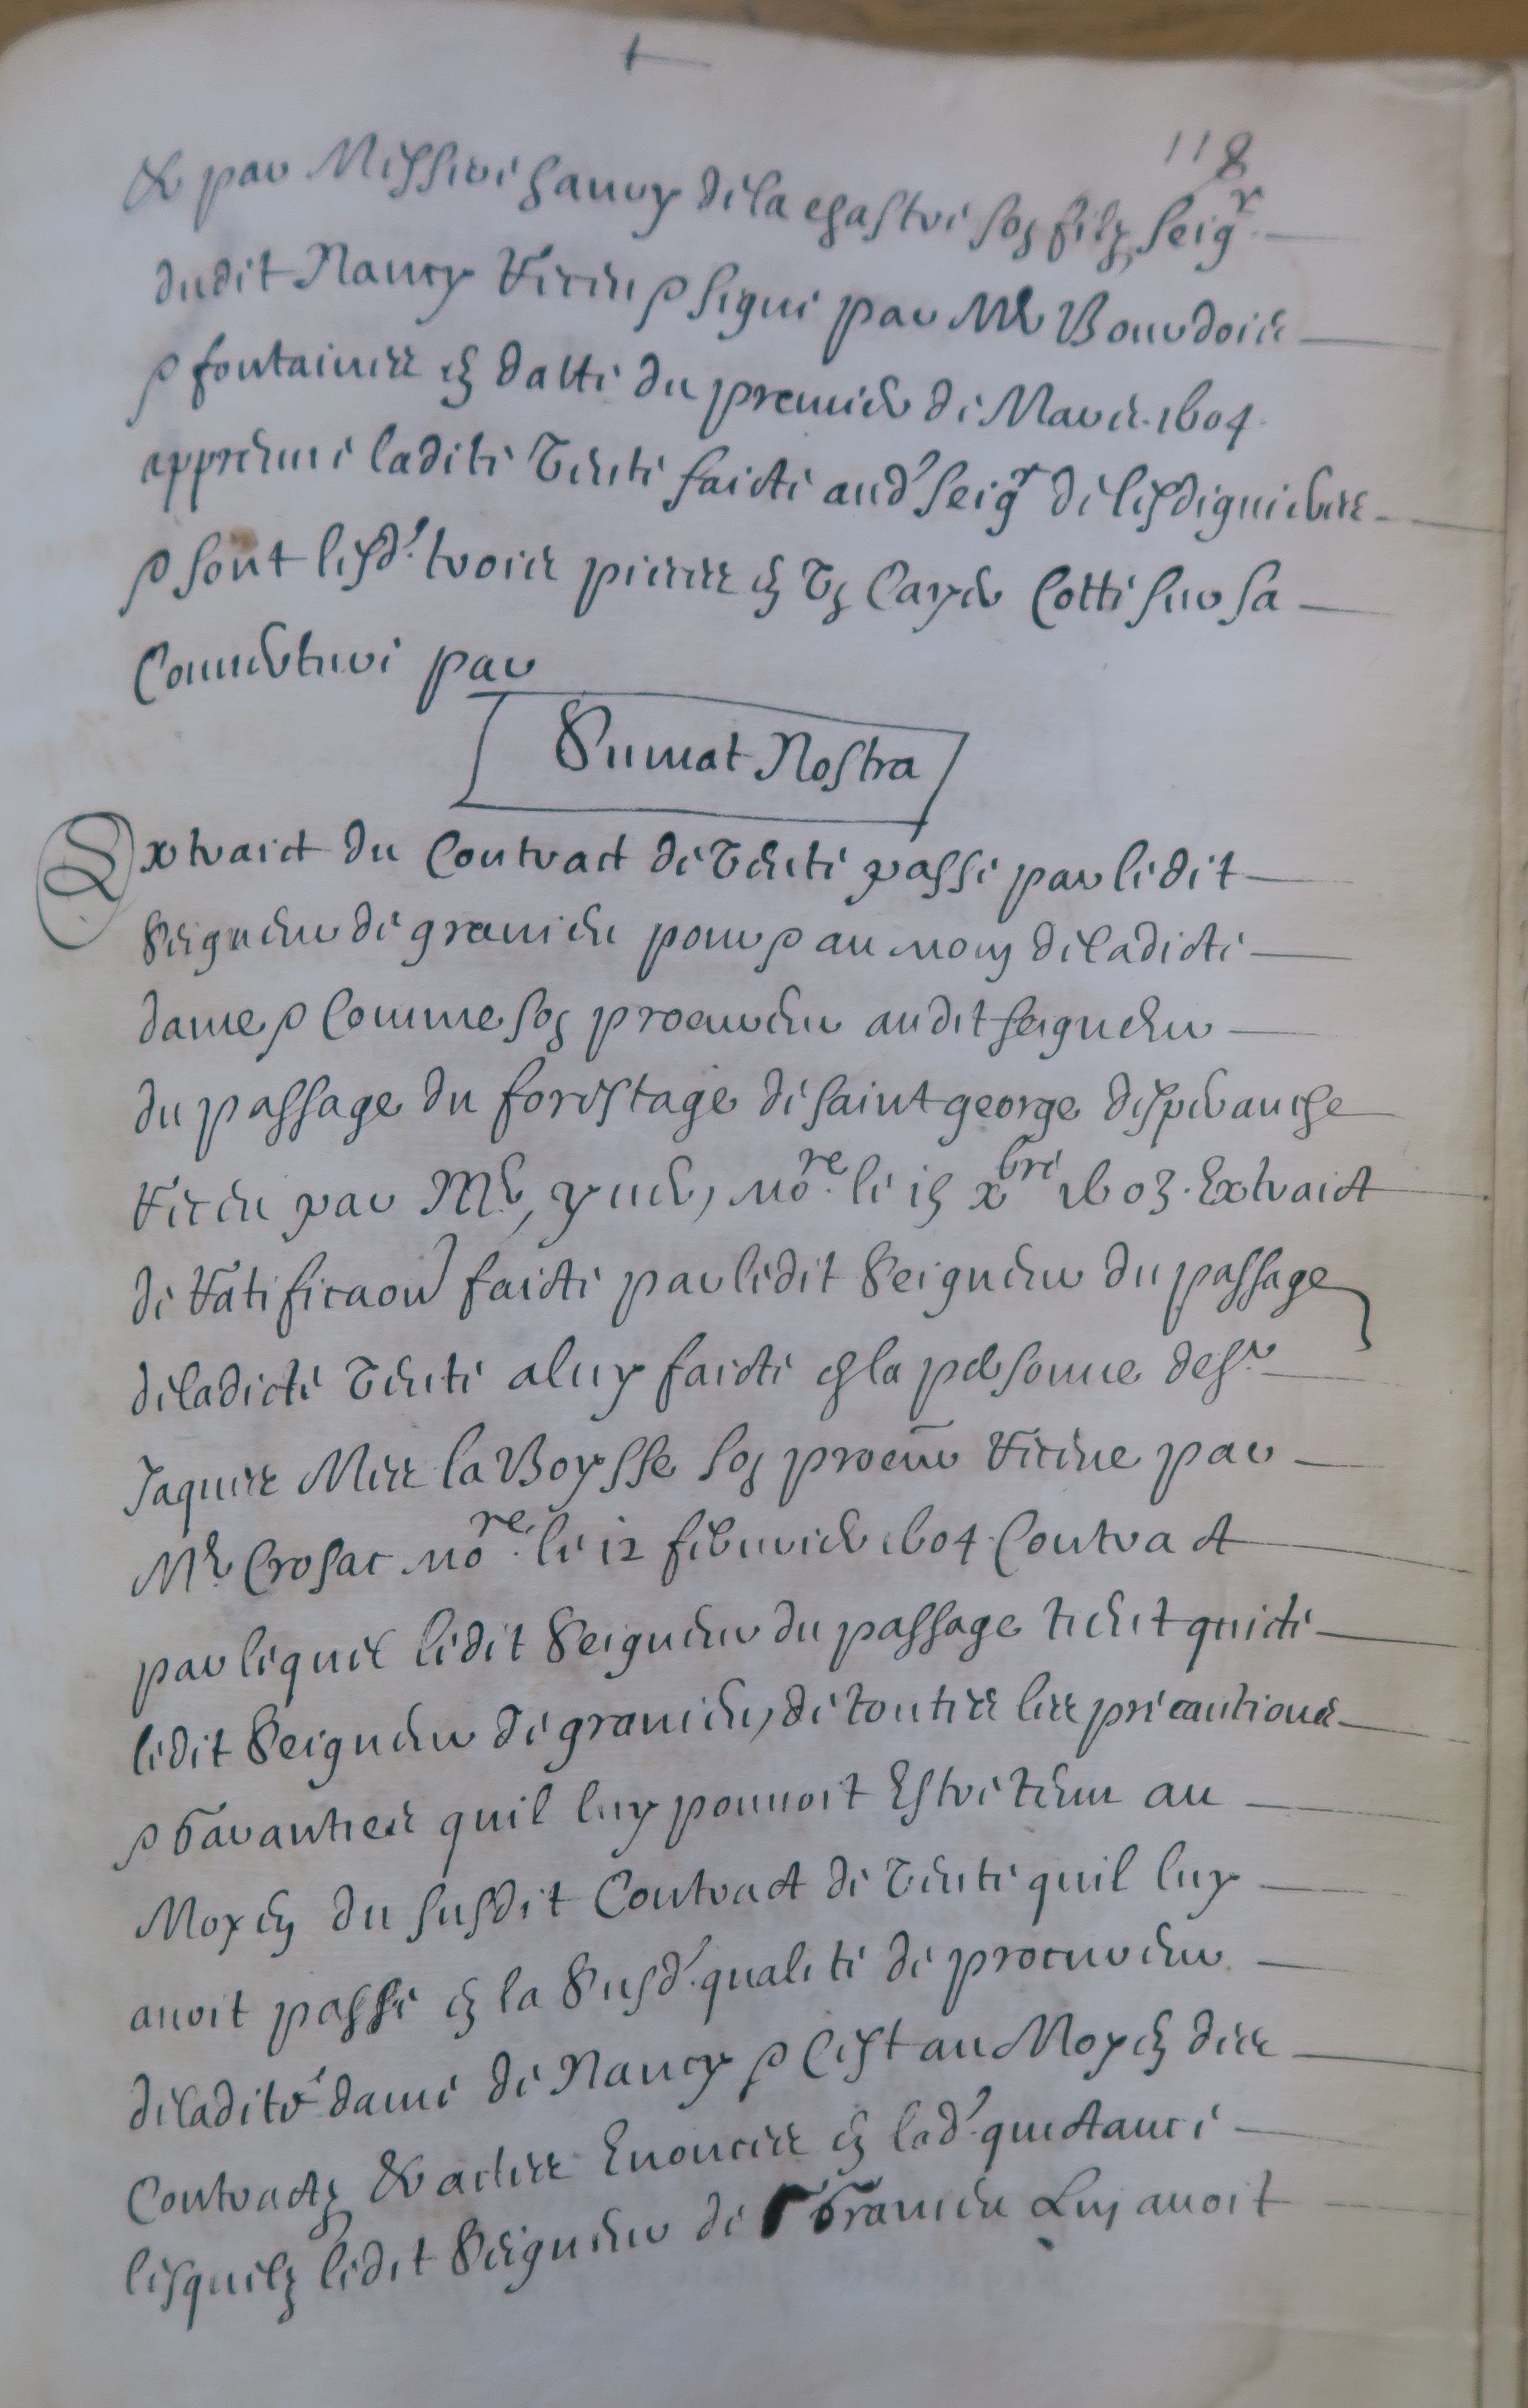 118
& par Messire Henry de la chastre son filz seigr
dudit Nancy Receu & signé par Me Bourdois
& fontaines en datte du premier de Mars 1604
appreuve ladite Vente faicte aud' seigr de lesdiguieres
& sont lesd' trois pieces en Un Cayer Cotté sur sa
Couverture par
Sumat Nostra
Extraict du Contract de Vente passé par ledit
Seigneur de granieu pour & au nom de ladicte
dame & Comme son procureur audit seigneur
du passage du forestage de saint george desperanche
Receu par Me, ymer, nore. le is xbre 1603. Extraict
de Ratificaon faicte par ledit Seigneur du passage
de ladicte Vente a luy faicte en la personne de sr.
Jaques Mes la Boysse son procur Receue par
Me Crosat nore. le 12 febvrier 1604. Contract
par lequel ledit Seigneur du passage tient quicte
ledit Seigneur de granieu, de toutes les precautions
& Garanties quil luy pouvoit Estre tenu au
Moyen du susdit Contract de Vente quil luy
avoit passé en la Susd' qualité de procureur
de ladite dame de Nancy & Cest au Moyen des
Contractz & actes Enoncés en lad' quictance
lesquelz ledit Seigneur de Granieu Luy avoit